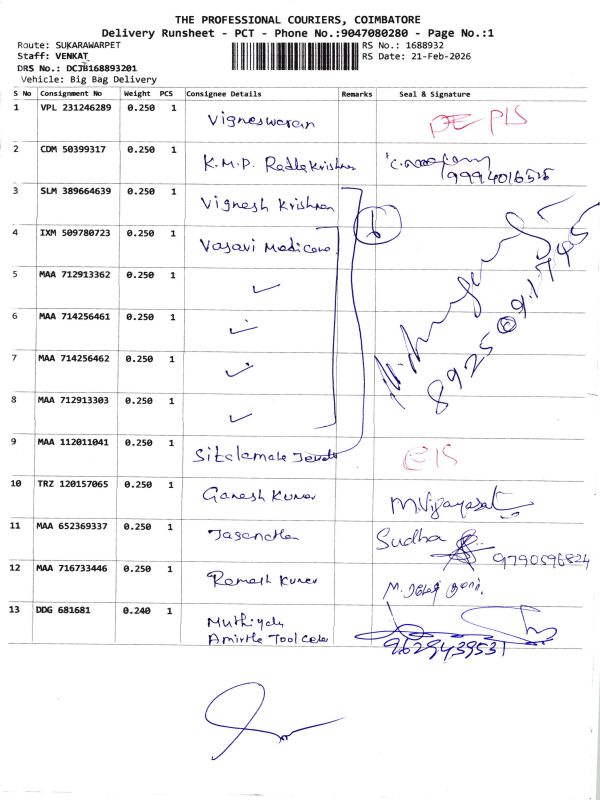 THE PROFESSIONAL COURIERS, COIMBATORE
Delivery Runsheet - PCT - Phone No.:9047080280 - Page No.:1
Route: SUKARAWARPET RS No.: 1688932
Staff: VENKAT RS Date: 21-Feb-2026
DRS No.: DCJB168893201
Vehicle: Big Bag Delivery
S No Consignment No Weight PCS Consignee Details Remarks Seal & Signature
1 VPL 231246289 0.250 1 Vigneswaran
2 CDM 50399317 0.250 1 K.M.P. Radhakrishnan
3 SLM 389664639 0.250 1 Vignesh Krishnan
4 IXM 509780723 0.250 1 Vasavi Medicare
5 MAA 712913362 0.250 1 ✓
6 MAA 714256461 0.250 1 ✓
7 MAA 714256462 0.250 1 ✓
8 MAA 712913303 0.250 1 ✓
6
8925091745
9 MAA 112011041 0.250 1
10 TRZ 120157065 0.250 1 Ganesh Kumar
11 MAA 652369337 0.250 1 Sudha
9790596824
12 MAA 716733446 0.250 1 Ramesh Kumar
13 DDG 681681 0.240 1
9629439531